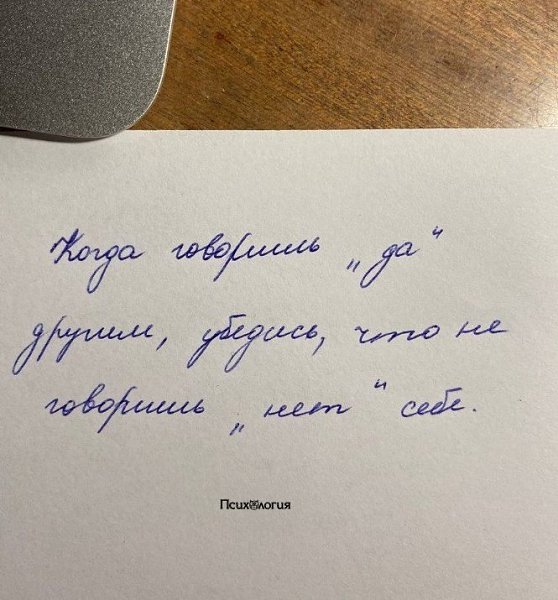 Когда говоришь „да“
другим, убедись, что не
говоришь „нет“ себе.
Психология